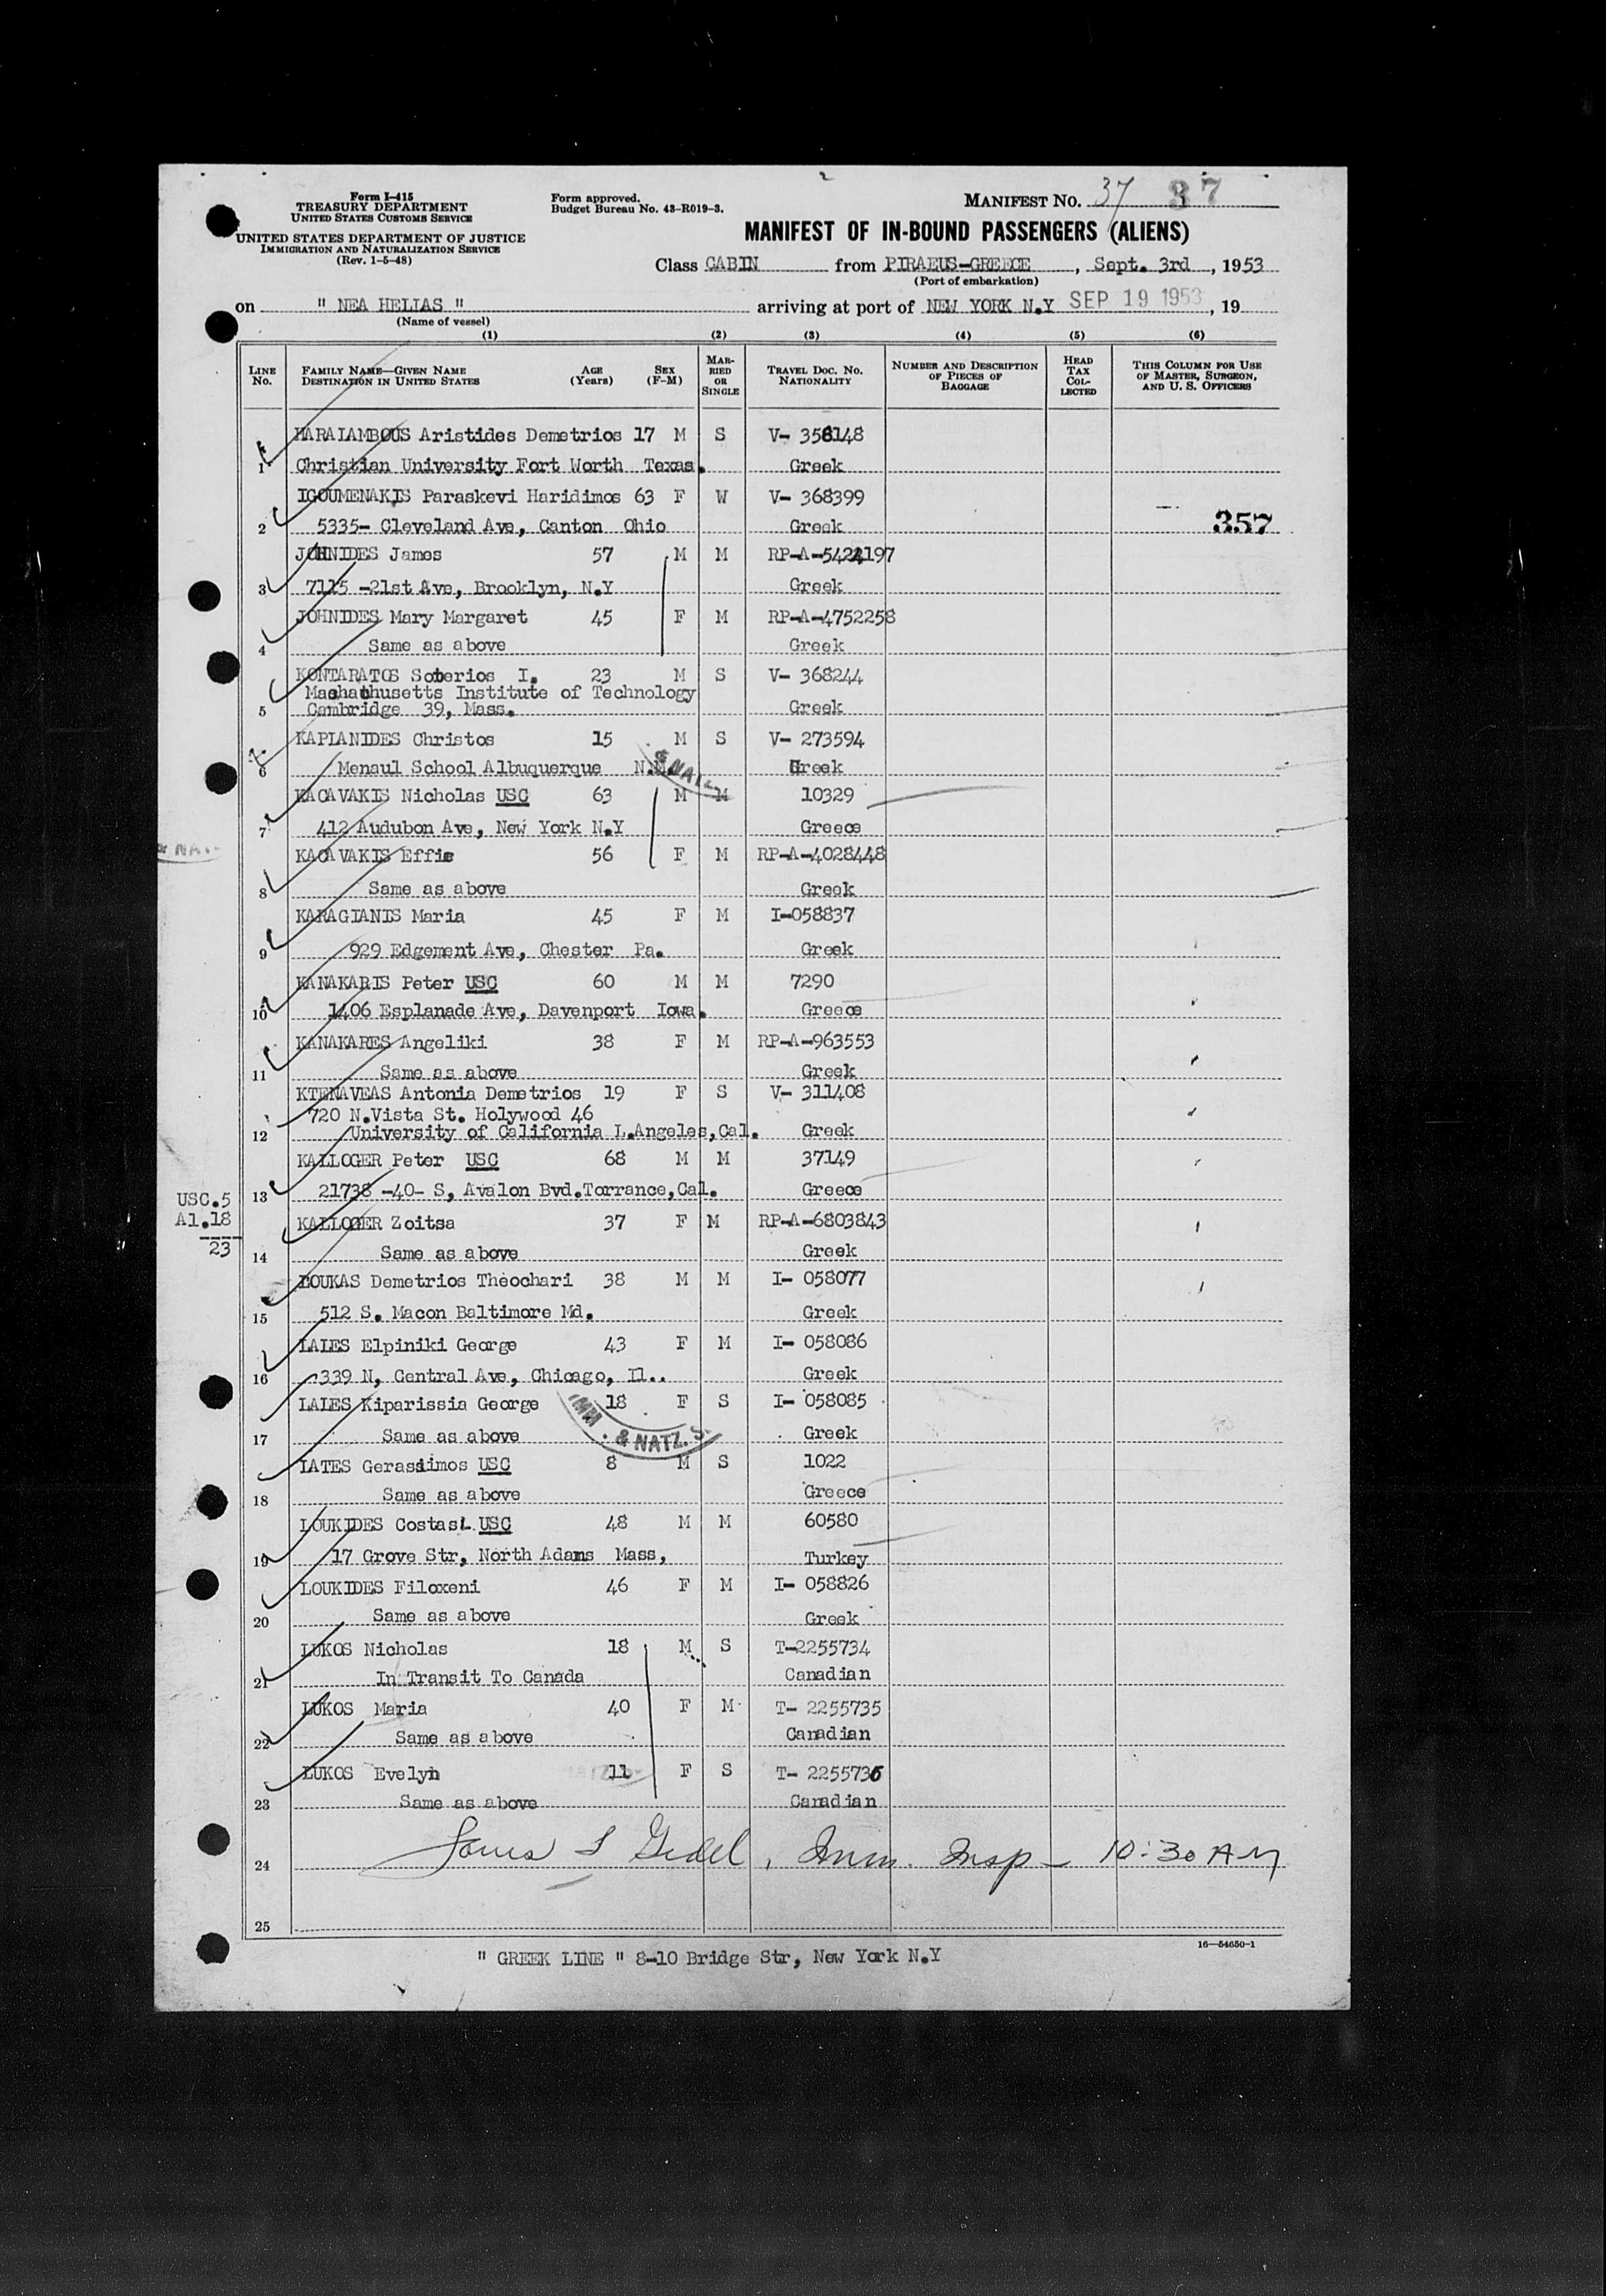 Form I-415
TREASURY DEPARTMENT
UNITED STATES CUSTOMS SERVICE
UNITED STATES DEPARTMENT OF JUSTICE
IMMIGRATION AND NATURALIZATION SERVICE
(Rev. 1-5-48)
Form approved.
Budget Bureau No. 43-R019-3.
MANIFEST No. 37 37
MANIFEST OF IN-BOUND PASSENGERS (ALIENS)
Class CABIN from PIRAEUS-GREECE, Sept. 3rd, 1953
(Port of embarkation)
on " NEA HELIAS " arriving at port of NEW YORK N.Y SEP 19 1953, 19
(Name of vessel)
(1) (2) (3) (4) (5) (6)
LINE No. FAMILY NAME—GIVEN NAME DESTINATION IN UNITED STATES AGE (Years) SEX (F-M) MARRIED OR SINGLE TRAVEL DOC. NO. NATIONALITY NUMBER AND DESCRIPTION OF PIECES OF BAGGAGE HEAD TAX COLLECTED THIS COLUMN FOR USE OF MASTER, SURGEON, AND U. S. OFFICERS
HARALAMBOUS Aristides Demetrios 17 M S V- 358148
1 Christian University Fort Worth Texas. Greek
IGOUMENAKIS Paraskevi Haridimos 63 F W V- 368399
2 5335- Cleveland Ave, Canton Ohio Greek 357
JOHNIDES James 57 M M RP-A-5424197
3 7115 -21st Ave, Brooklyn, N.Y Greek
JOHNIDES Mary Margaret 45 F M RP-A-4752258
4 Same as above Greek
KONTARATOS Soterios I. 23 M S V- 368244
Mashathusetts Institute of Technology
5 Cambridge 39, Mass. Greek
KAPLANIDES Christos 15 M S V- 273594
6 Menaul School Albuquerque N.M. Greek
& NATZ.
KACAVAKIS Nicholas USC 63 M M 10329
7 412 Audubon Ave, New York N.Y Greece
KACAVAKIS Effie 56 F M RP-A-4028448
8 Same as above Greek
KARAGIANIS Maria 45 F M I-058837
9 929 Edgement Ave, Chester Pa. Greek
KANAKARIS Peter USC 60 M M 7290
10 1406 Esplanade Ave, Davenport Iowa. Greece
KANAKARES Angeliki 38 F M RP-A-963553
11 Same as above Greek
KTENAVEAS Antonia Demetrios 19 F S V- 311408
720 N.Vista St. Holywood 46
12 University of California L.Angeles,Cal. Greek
KALLOGER Peter USC 68 M M 37149
13 21738 -40- S, Avalon Bvd.Torrance,Cal. Greece
USC.5
Al.18
23
KALLOGER Zoitsa 37 F M RP-A-6803843
14 Same as above Greek
LOUKAS Demetrios Theochari 38 M M I- 058077
15 512 S. Macon Baltimore Md. Greek
LALES Elpiniki George 43 F M I- 058086
16 339 N, Central Ave, Chicago, Il.. Greek
LALES Kiparissia George 18 F S I- 058085
17 Same as above Greek
IMM. & NATZ. S.
LATES Gerassimos USC 8 M S 1022
18 Same as above Greece
LOUKIDES Costas L. USC 48 M M 60580
19 17 Grove Str, North Adams Mass, Turkey
LOUKIDES Filoxeni 46 F M I- 058826
20 Same as above Greek
LUKOS Nicholas 18 M S T-2255734
21 In Transit To Canada Canadian
LUKOS Maria 40 F M T- 2255735
22 Same as above Canadian
LUKOS Evelyn 11 F S T- 2255736
23 Same as above Canadian
24 Imm. Insp - 10:30 AM
25
16—54650-1
" GREEK LINE " 8-10 Bridge Str, New York N.Y